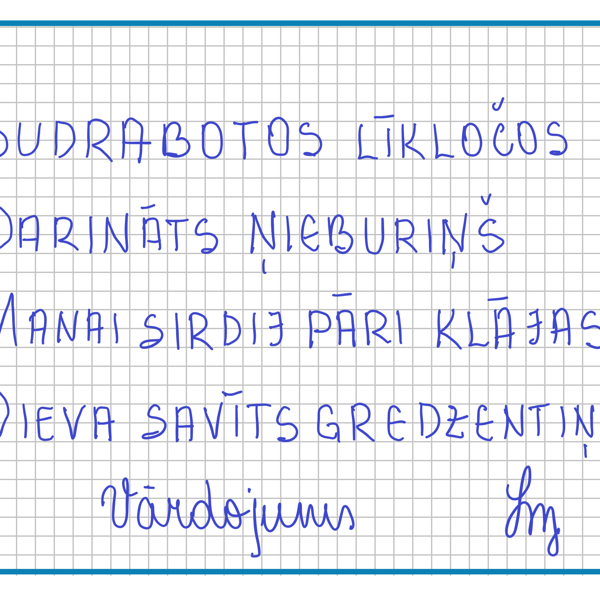 SUDRABOTOS LĪKLOČOS
DARINĀTS ŅIEBURIŅŠ
MANAI SIRDIJ PĀRI KLĀJAS
DIEVA SAVĪTS GREDZENTIŅ
Vārdojums